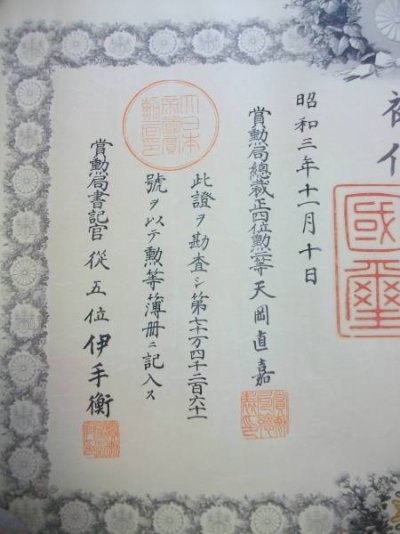 國璽
昭和三年十一月十日
賞勲局總裁正四位勲二等 天岡直嘉
大日本
帝國賞
勲局印
此證ヲ勘査シ第七十万四千二百六十一
號ヲ以テ勲等簿冊ニ記入ス
賞勲局書記官 從五位 伊手衡